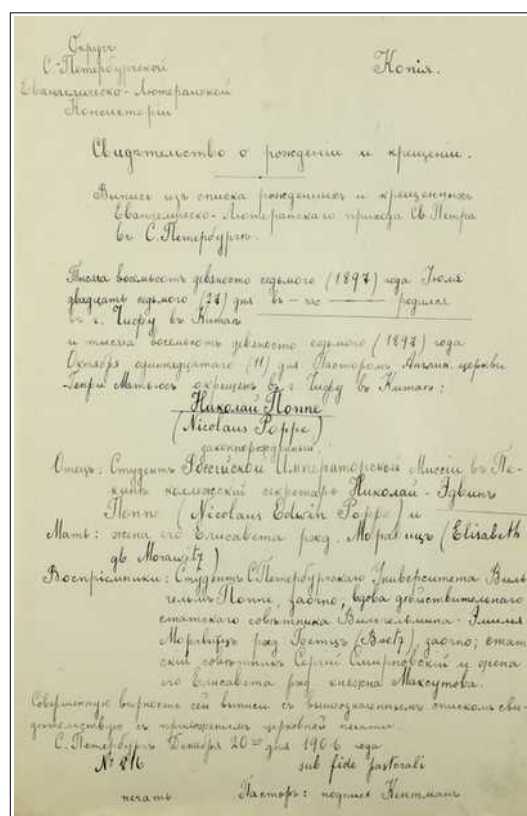 Округъ
С.-Петербургской
Евангелическо-Лютеранской
Консисторіи
Копія.
Свидѣтельство о рожденіи и крещеніи.
Выпись изъ списка рожденныхъ и крещенныхъ
Евангелическо-Лютеранскаго прихода Св. Петра
въ С. Петербургѣ.
Тысяча восемьсотъ девяносто седьмого (1897) года Іюля
двадцать седьмого (27) дня въ — час — родился
въ г. Чифу въ Китаѣ
и тысяча восемьсотъ девяносто седьмого (1897) года
Октября одиннадцатаго (11) дня Пасторомъ Англик. церкви
Генри Матьюсъ окрещенъ въ г. Чифу въ Китаѣ:
Николай Поппе
(Nicolaus Poppe)
законнорожденный.
Отецъ: Студентъ Россійской Императорской Миссіи въ Пе-
кинѣ коллежскій секретарь Николай-Эдвинъ
Поппе (Nicolaus Edwin Poppe) и
Мать: жена его Елисавета рожд. Моравицъ (Elisabeth
де Morawitz)
Воспріемники: Студентъ С.Петербургскаго Университета Виль-
гельмъ Поппе, заочно, вдова действительнаго
статскаго совѣтника Вильгельмина-Эмилія
Моравицъ рожд. заочно; стат-
скій совѣтникъ Сергій Смирновскій и жена
его Елисавета рожд. княжна Максутова.
Совершенную вѣрность сей выписи съ вышеозначеннымъ спискомъ сви-
дѣтельствую съ приложеніемъ церковной печати.
С. Петербургъ Декабря 20го дня 1906 года
№ 816
sub fide pastorali
печать
Пасторъ: подпись Кентманъ